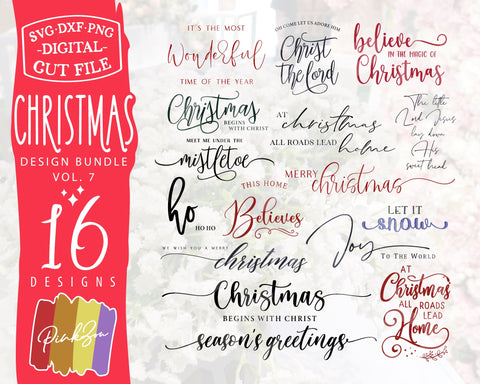 SVG·DXF·PNG
-DIGITAL-
CUT FILE
CHRISTMAS
DESIGN BUNDLE
VOL. 7
16
DESIGNS
PinkZou
IT'S THE MOST
Wonderful
TIME OF THE YEAR
OH COME LET US ADORE HIM
Christ
the Lord
believe
IN THE MAGIC OF
Christmas
Christmas
BEGINS WITH CHRIST
AT christmas
ALL ROADS LEAD home
The little
Lord Jesus
lay down
His
sweet head
MEET ME UNDER THE
mistletoe
MERRY christmas
ho
HO HO
THIS HOME
Believes
LET IT
snow
WE WISH YOU A MERRY
christmas
Joy
TO THE WORLD
Christmas
BEGINS WITH CHRIST
season's greetings
AT
Christmas
ALL ROADS
LEAD
Home